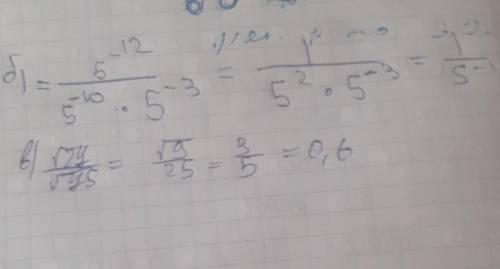 б) = 5^-12 / 5^-10 · 5^-3 = 1 / 5^2 · 5^-3 = 1 / 5^-1
в) √27 / √75 = √9 / 25 = 3/5 = 0,6